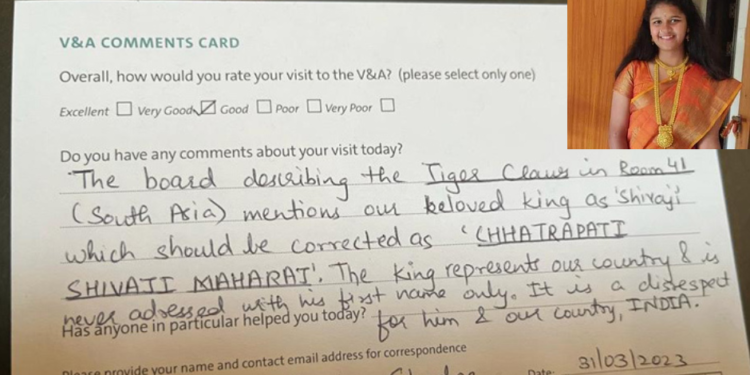 V&A COMMENTS CARD
Overall, how would you rate your visit to the V&A? (please select only one)
Excellent Very Good Good Poor Very Poor
Do you have any comments about your visit today?
"The board describing the Tiger Claws in Room 41
(South Asia) mentions our beloved king as 'Shivaji'
which should be corrected as 'CHHATRAPATI
SHIVAJI MAHARAJ'. The King represents our country & is
never adressed with his first name only. It is a disrespect
for him & our country, INDIA.
Has anyone in particular helped you today?
Please provide your name and contact email address for correspondence
Date: 31/03/2023